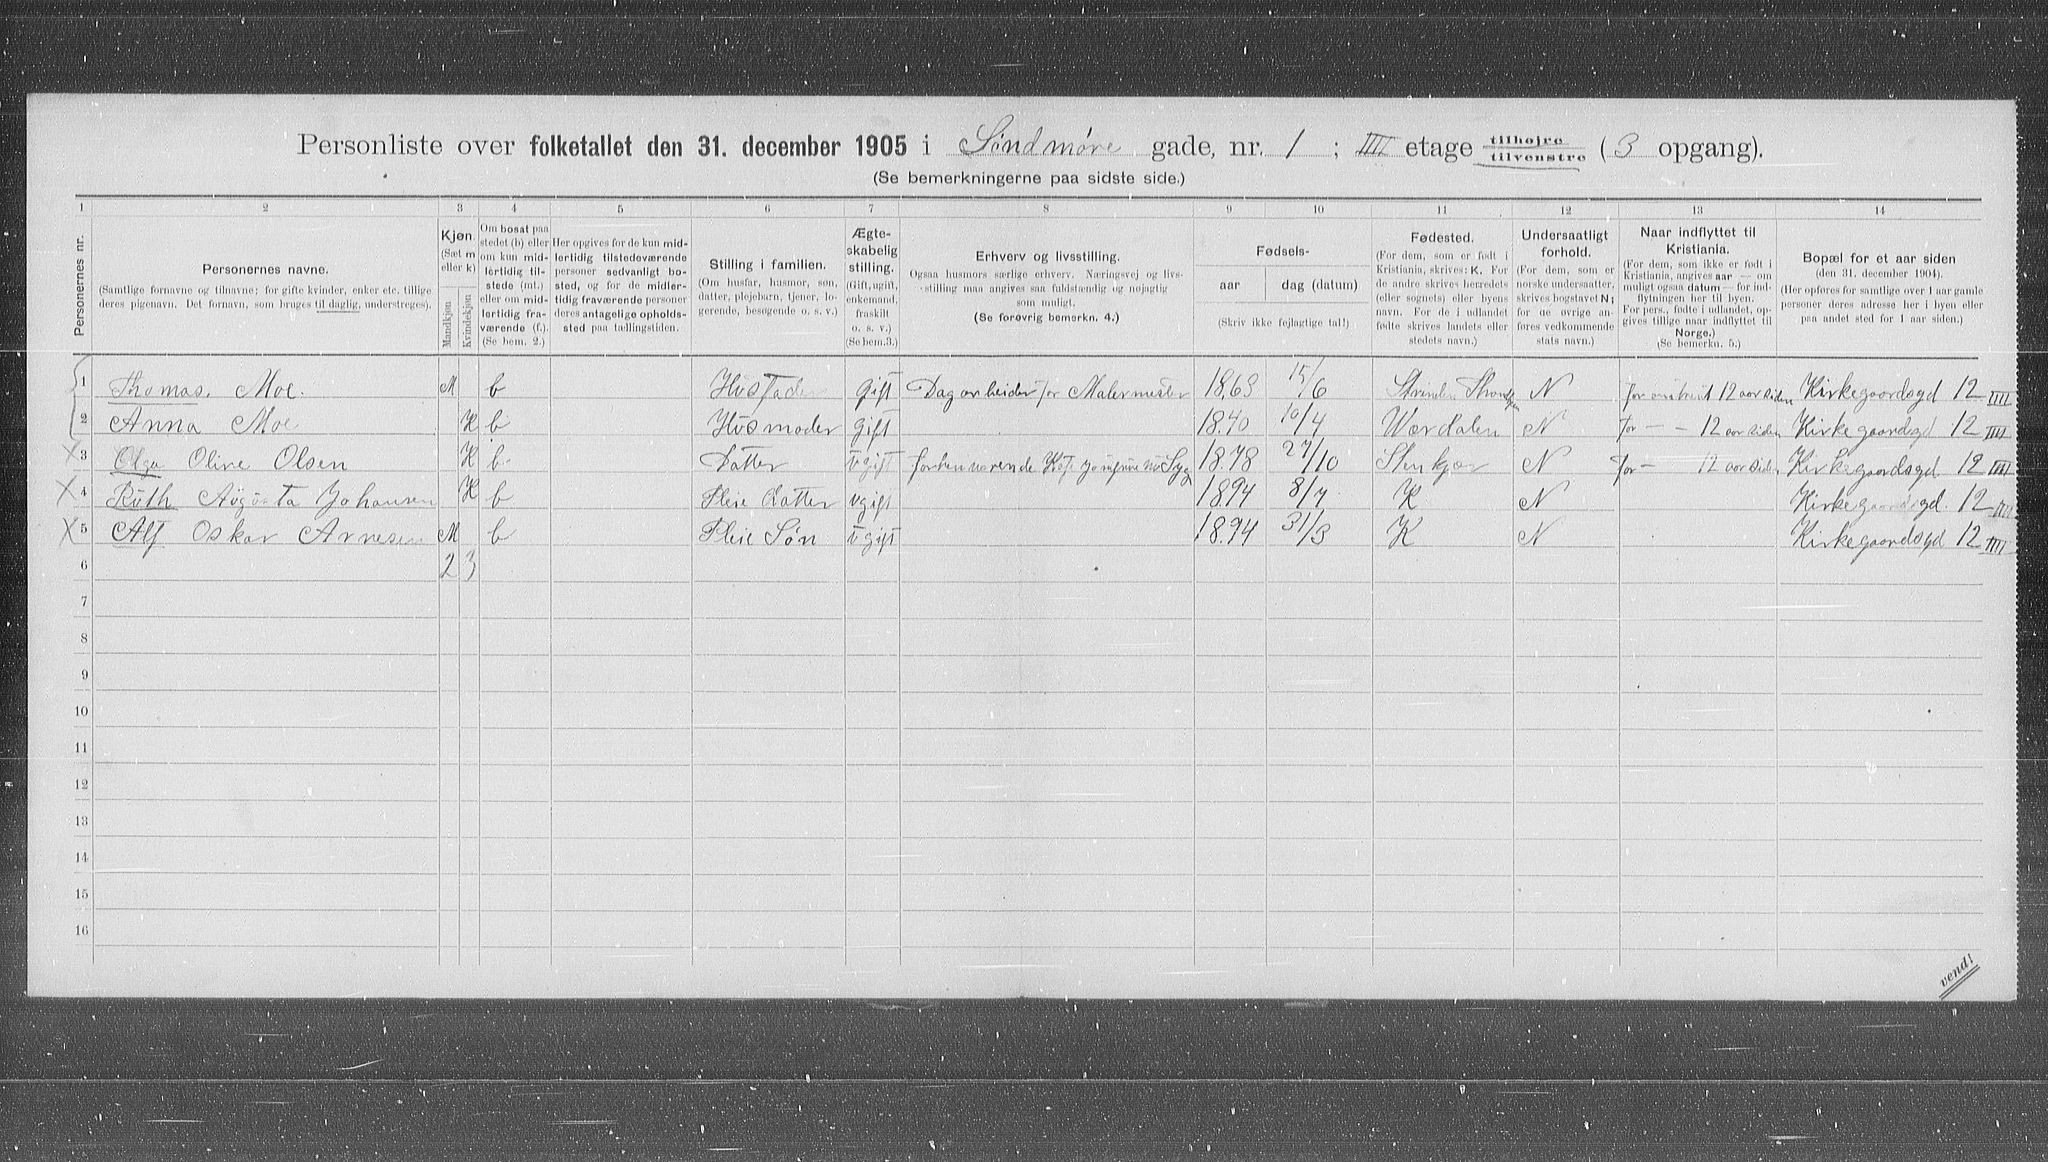 Personliste over folketallet den 31. december 1905 i Søndmøre gade, nr. 1 ; IIII etage tilhøjre tilvenstre (3 opgang).
(Se bemerkningerne paa sidste side.)
1 2 3 4 5 6 7 8 9 10 11 12 13 14
Personernes nr.
Personernes navne.
(Samtlige fornavne og tilnavne; for gifte kvinder, enker etc. tillige
deres pigenavn. Det fornavn, som bruges til daglig, understreges).
Kjøn.
(Sæt m
eller k)
Mandkjøn
Kvindekjøn
Om bosat paa
stedet (b) eller
om kun mid-
lertidig til-
stede (mt.)
eller om mid-
lertidig fra-
værende (f.).
(Se bem. 2.)
Her opgives for de kun mid-
lertidig tilstedeværende
personer sedvanligt bo-
sted, og for de midler-
tidig fraværende personer
deres antagelige opholds-
sted paa tællingstiden.
Stilling i familien.
(Om husfar, husmor, søn,
datter, plejebarn, tjener, lo-
gerende, besøgende o. s. v.)
Ægte-
skabelig
stilling.
(Gift, ugift,
enkemand,
fraskilt
o. s. v.)
(Se bem. 3.)
Erhverv og livsstilling.
Ogsaa husmors særlige erhverv. Næringsvej og livs-
stilling maa angives saa fuldstændig og nøjagtig
som muligt.
(Se forøvrig bemerkn. 4.)
Fødsels-
aar
dag (datum)
(Skriv ikke fejlagtige tal!)
Fødested.
(For dem, som er født i
Kristiania, skrives: K. For
de andre skrives herredets
(eller sognets) eller byens
navn. For de i udlandet
fødte skrives landets eller
stedets navn.)
Undersaatligt
forhold.
(For dem, som er
norske undersaatter,
skrives bogstavet N;
for de øvrige an-
føres vedkommende
stats navn.)
Naar indflyttet til
Kristiania.
(For dem, som ikke er født i
Kristiania, angives aar — om
muligt ogsaa datum — for ind-
flytningen her til byen.
For pers., fødte i udlandet, op-
gives tillige naar indflyttet til
Norge.)
(Se bemerkn. 5.)
Bopæl for et aar siden
(den 31. december 1904).
(Her opføres for samtlige over 1 aar gamle
personer deres adresse her i byen eller
paa andet sted for 1 aar siden.)
1 Thomas. Moe. M b Husfader gift Dagarbeider for Malermester 1863 15/6 Strinden N 12 aar siden Kirkegaardsgd 12 IIII
2 Anna Moe K b Husmoder gift 1840 10/4 Værdalen N for — — 12 aar siden Kirkegaardsgd 12 IIII
3 Olga Oline Olsen K b Datter ugift forhenværende nu Syg 1878 27/10 Stenkjær N for — 12 aar siden Kirkegaardsgd 12 IIII
4 Ruth Augusta Johansen K b Pleie datter ugift 1894 8/7 K N Kirkegaardsgd. 12 IIII
5 Alf Oskar Arnesen M b Pleie Søn ugift 1894 31/3 K N Kirkegaardsgd 12 IIII
6 2 3
7
8
9
10
11
12
13
14
15
16
vend!